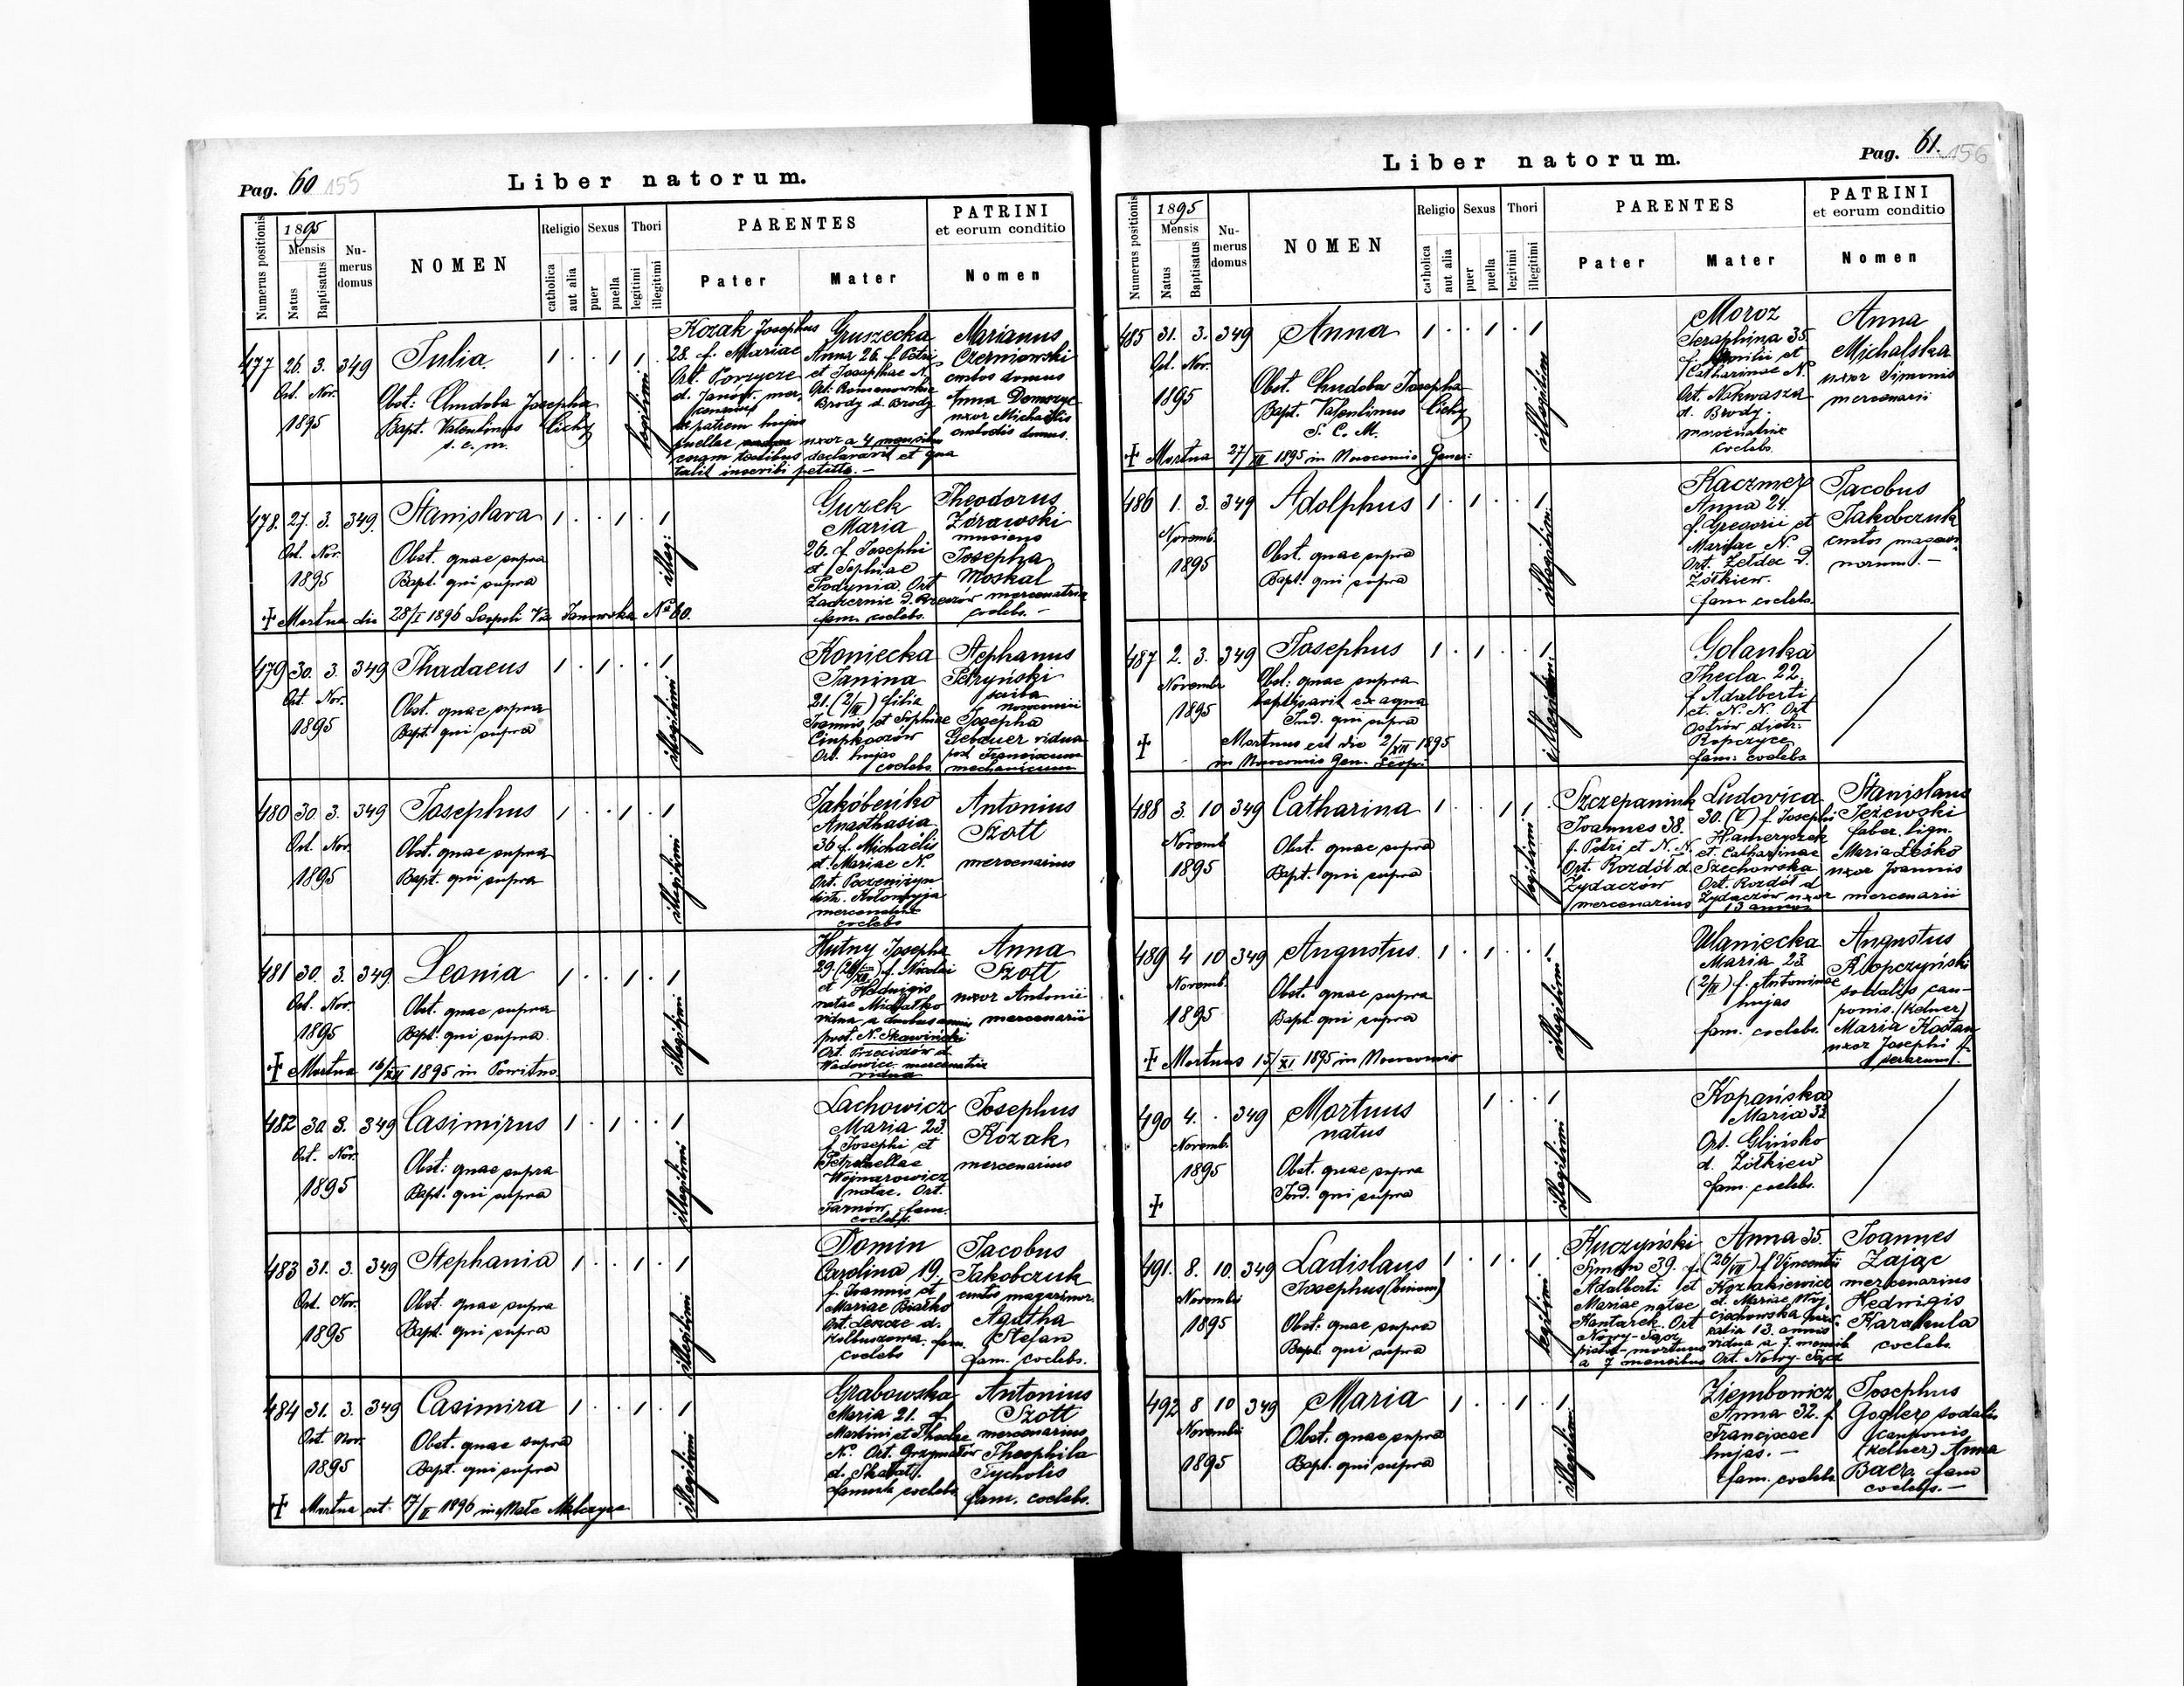 Pag. 60 155
Liber natorum.
Numerus positionis
1895
Mensis
Natus
Baptisatus
Numerus domus
NOMEN
Religio
catholica
aut alia
Sexus
puer
puella
Thori
legitimi
illegitimi
PARENTES
Pater
Mater
PATRINI
et eorum conditio
Nomen
477 26. 3. 349 Julia 1 . . 1 1 .
Oct. Nov.
1895
Obst: Chudoba Josepha
Bapt. Valentinus Cichy
s. c. m.
legitimi
Kozak Josephus
28. f. Mariae
Ort. Porzycze
d. Janów. mer
cenarius
patrem hujus
puellae uxor a 4 mensibus
coram testibus declaravit et qua
talit inscribi petitto. —
Gruszecka
Anna 26. f. Petri
et Josephae N.
Ort: Romanowska
Brody d. Brody
Marianus
Czerniowski
custos domus
Anna Domszyc
uxor Michaëlis
custodis domus.
478. 27. 3. 349. Stanislava 1 . . 1 . 1
Oct. Nov.
1895
Obst. quae supra
Bapt. qui supra
illeg:
Guzek
Maria
26. f. Josephi
et Sophiae
Podynia. Ort
Zaczernie d. Rzeszów
fam. coelebs.
Theodorus
Żórawski
musicus
Josepha
Moskal
mercenatrix
coelebs. —
+ Mortua die 28/I 1896 Leopoli Via Janowska No 60.
479 30. 3. 349 Thadaeus 1 . 1 . . 1
Oct. Nov.
1895
Obst. quae supra
Bapt. qui supra
illegitimi
Koniecka
Janina
21. (2/III) filia
Joannis et Sophiae
Ort. hujas
coelebs.
Stephanus
Petryński
scriba
nosocomii
Josepha
Gebauer vidua
post Franciscum
mechanicum
480 30 3. 349 Josephus 1 . . 1 . 1
Oct. Nov.
1895
Obst. quae supra
Bapt. qui supra
illegitimi
Jakóbeńko
Anasthasia
36 f. Michaelis
et Mariae N.
Ort. Poczeniżyn
distr. Kołomyja
mercenatrix
coelebs
Antonius
Szott
mercenarius
481 30. 3. 349. Leonia 1 . . 1 . 1
Oct. Nov.
1895
Obst. quae supra
Bapt. qui supra.
illegitimi
Hutny Josepha
29. f. Nicolai
et Hedwigis
natae Michałko
vidua a duobus annis
post. N. Skawiński
Ort. Przeciszów d.
Wadowice mercenatrix
vidua
Anna
Szott
uxor Antonii
mercenarii
+ Mortua 16/XII 1895 in Powitno.
482 30 3. 349 Casimirus 1 . 1 . . 1
Oct. Nov.
1895
Obst: quae supra
Bapt. qui supra
illegitimi
Lachowicz
Maria 23.
f. Josephi et
Petronellae
Wojnarowicz
natae. Ort.
Tarnów, fam.
coelebs.
Josephus
Kozak
mercenarius
483 31. 3. 349 Stephania 1 . . 1 . 1
Oct. Nov.
1895
Obst. quae supra
Bapt. qui supra
illegitimi
Domin
Carolina 19.
f. Joannis et
Mariae Białko
Ort. Lencze d.
Kolbuszowa. fam.
coelebs
Jacobus
Jakobczuk
custos magazinor.
Agatha
Stefan
fam. coelebs.
484 31. 3. 349 Casimira 1 . . 1 . 1
Oct. Nov.
1895
Obst. quae supra
Bapt. qui supra
illegitimi
Grabowska
Maria 21. f.
Martini et Theclae
N. Ort. Grzymałów
d. Skałat.
famula coelebs.
Antonius
Szott
mercenarius
Theophila
Tycholis
fam. coelebs.
+ Mortua est. 17/II 1896 in Mała
Liber natorum.
Pag. 61. 156
Numerus positionis
1895
Mensis
Natus
Baptisatus
Numerus domus
NOMEN
Religio
catholica
aut alia
Sexus
puer
puella
Thori
legitimi
illegitimi
PARENTES
Pater
Mater
PATRINI
et eorum conditio
Nomen
485 31. 3. 349 Anna 1 . . 1 . 1
Oct. Nov.
1895
Obst. Chudoba Josepha
Bapt. Valentinus Cichy
S. C. M.
illegitim
Moroz
Seraphina 35.
f. et
Catharinae N.
Ort. Nakwasza
d. Brody.
mercenatrix
coelebs.
Anna
Michalska
uxor Simonis
mercenarii
+ Mortua 27/XII 1895 in Nosocomio Gener:
486 1. 3. 349 Adolphus 1 . 1 . . 1
Novemb.
1895
Obst. quae supra
Bapt. qui supra
illegitim
Kaczmer
Anna 24.
f. Gregorii et
Mariae N.
Ort. Żełdec d.
Żółkiew.
fam coelebs.
Jacobus
Jakobczuk
custos magazi
norum. —
487 2. 3. 349 Josephus 1 . 1 . . 1
Novembr
1895
Obst: quae supra
baptisavit ex aqua
Ind. qui supra
illegitim.
Golanka
Thecla 22
f Adalberti
et. N. N. Ort
Ostrów distr.
Ropczyce
fam: coelebs
+ Mortuus est die 2/XII 1895
in Nosocomio Gen. Leopo.
488 3. 10 349 Catharina 1 . . 1 1 .
Novemb
1895
Obst. quae supra
Bapt. qui supra
legitimi
Szczepaniuk
Joannes 38.
f. Petri et N. N.
Ort. Rozdół d.
Żydaczów
mercenarius
Ludovica
30. (V) f. Josephi
Hameryszek
et Catharinae
Szechowska
Ort. Rozdół d
Żydaczów uxor
13 annos
Stanislaus
Jeżewski
faber. lign.
Maria Leśko
uxor Joannis
mercenarii
489 4 10 349 Augustus. 1 . 1 . . 1
Novemb.
1895
Obst. quae supra
Bapt. qui supra
illegitimi
Ulaniecka
Maria 23
(2/II) f. Antoninae
hujas
fam. coelebs.
Augustus
Klopczyński
sodalis cau-
ponis. (Kelner)
Maria Kostan
uxor Josephi
+ Mortuus 15/XI 1895 in Nosocomio
490 4. . 349 Mortuus
natus 1 . . 1
Novemb.
1895
Obst. quae supra
Ind. qui supra
+
illegitimi
Kopańska
Maria 32
Ort. Glińsko
d. Żółkiew
fam. coelebs.
491. 8. 10. 349 Ladislaus 1 . 1 . 1 .
Josephus (binom)
Novembri
1895
Obst: quae supra
Bapt. qui supra
legitimi
Kuczyński
Simon 39. f.
Adalberti et
Mariae natae
Kantarek. Ort
Nowy-Sącz
pistor- mortuus
a 7 mensibus
Anna 35.
(26/VII) f Vincentii
Kozłakiewicz
et. Mariae Woj-
ciechowska
13. annis
vidua a 7. mensib
Ort. Nowy-Sącz
Joannes
Zając
mercenarius
Hedwigis
Karakula
coelebs
492 8 10 349 Maria 1 . . 1 . 1
Novembri
1895
Obst. quae supra
Bapt. qui supra
illegitim.
Ziembowicz
Anna 32. f.
Franciscae
hujas. —
fam. coelebs
Josephus
Gogler sodalis
cauponis
(Kelner) Anna
Baer fam
coelebs. —